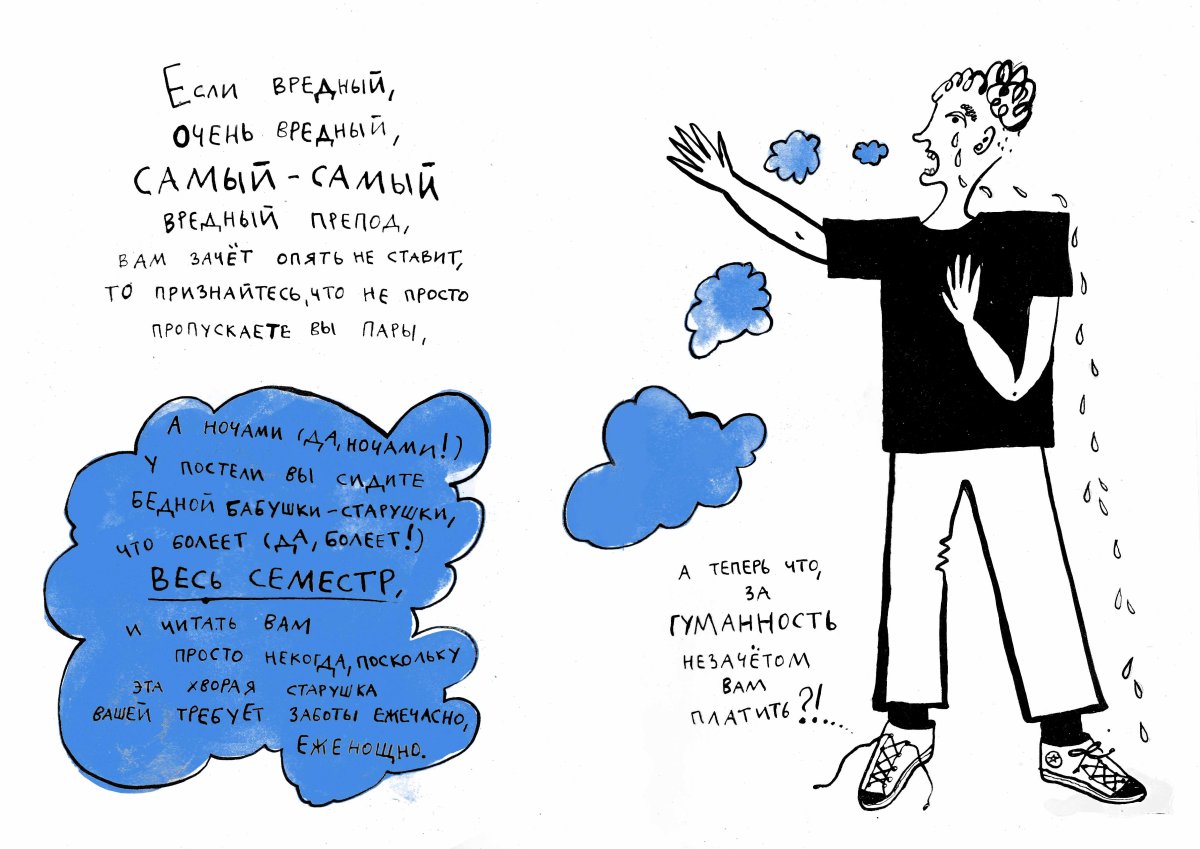 Если вредный,
очень вредный,
САМЫЙ-САМЫЙ
вредный препод,
вам зачёт опять не ставит,
то признайтесь, что не просто
пропускаете вы пары,
А ночами (да, ночами!)
у постели вы сидите
бедной бабушки-старушки,
что болеет (да, болеет!)
ВЕСЬ СЕМЕСТР,
и читать вам
просто некогда, поскольку
эта хворая старушка
вашей требует заботы ежечасно,
еженощно.
А теперь что,
за
ГУМАННОСТЬ
незачётом
вам
платить?!.....